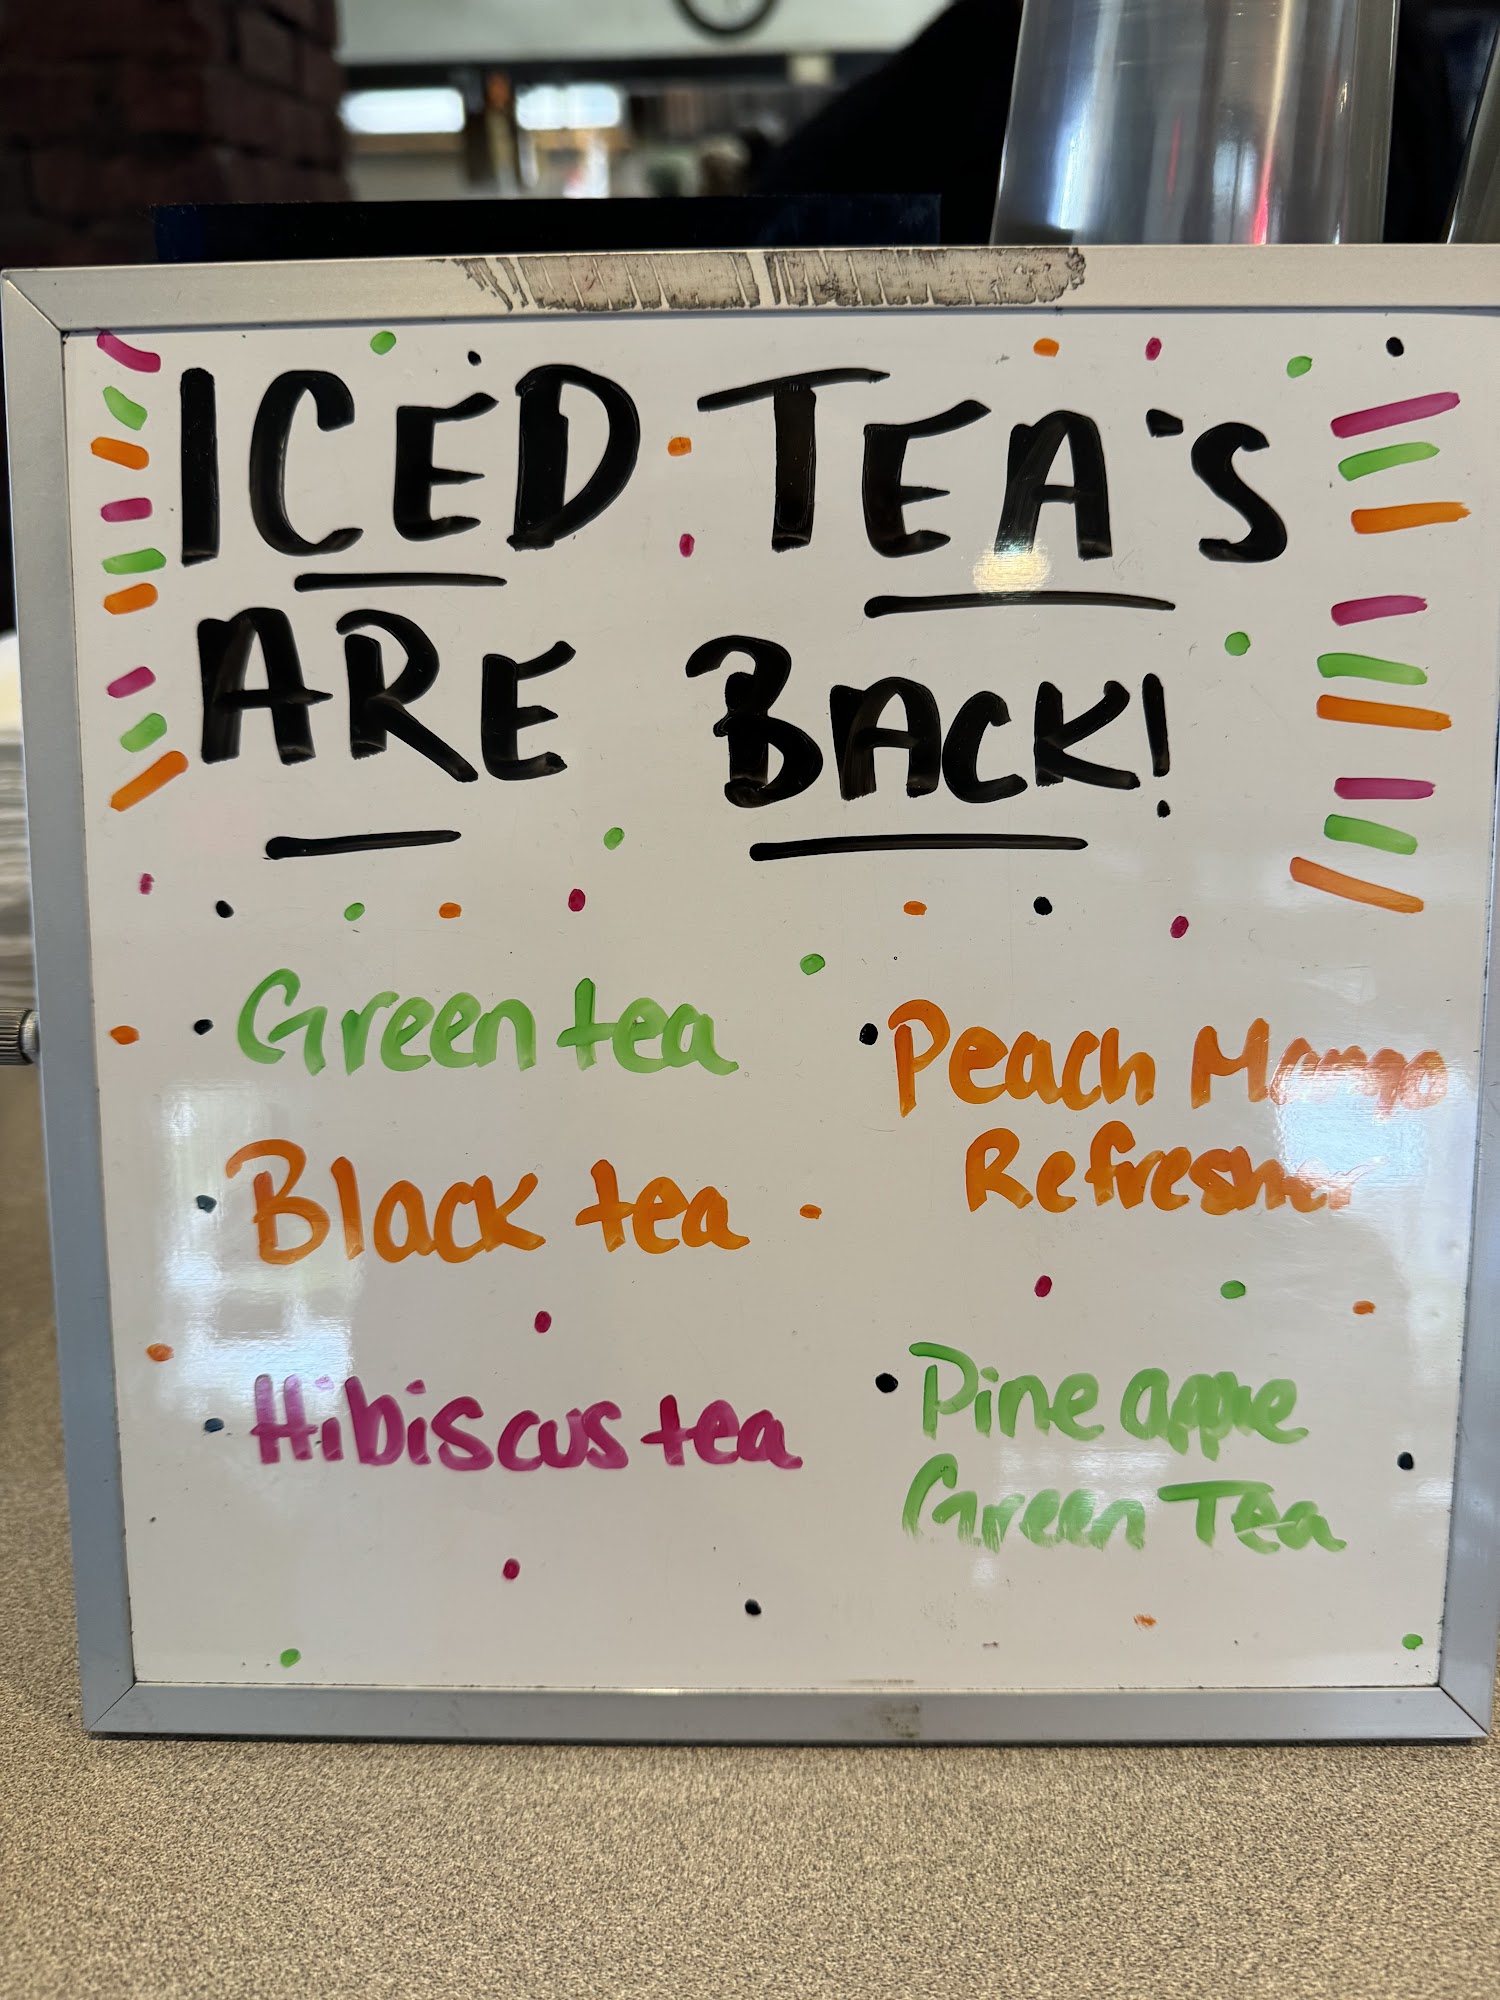 ICED TEA'S
ARE BACK!
Green tea
Black tea
Hibiscus tea
Peach Mango
Refresher
Pineapple
Green Tea